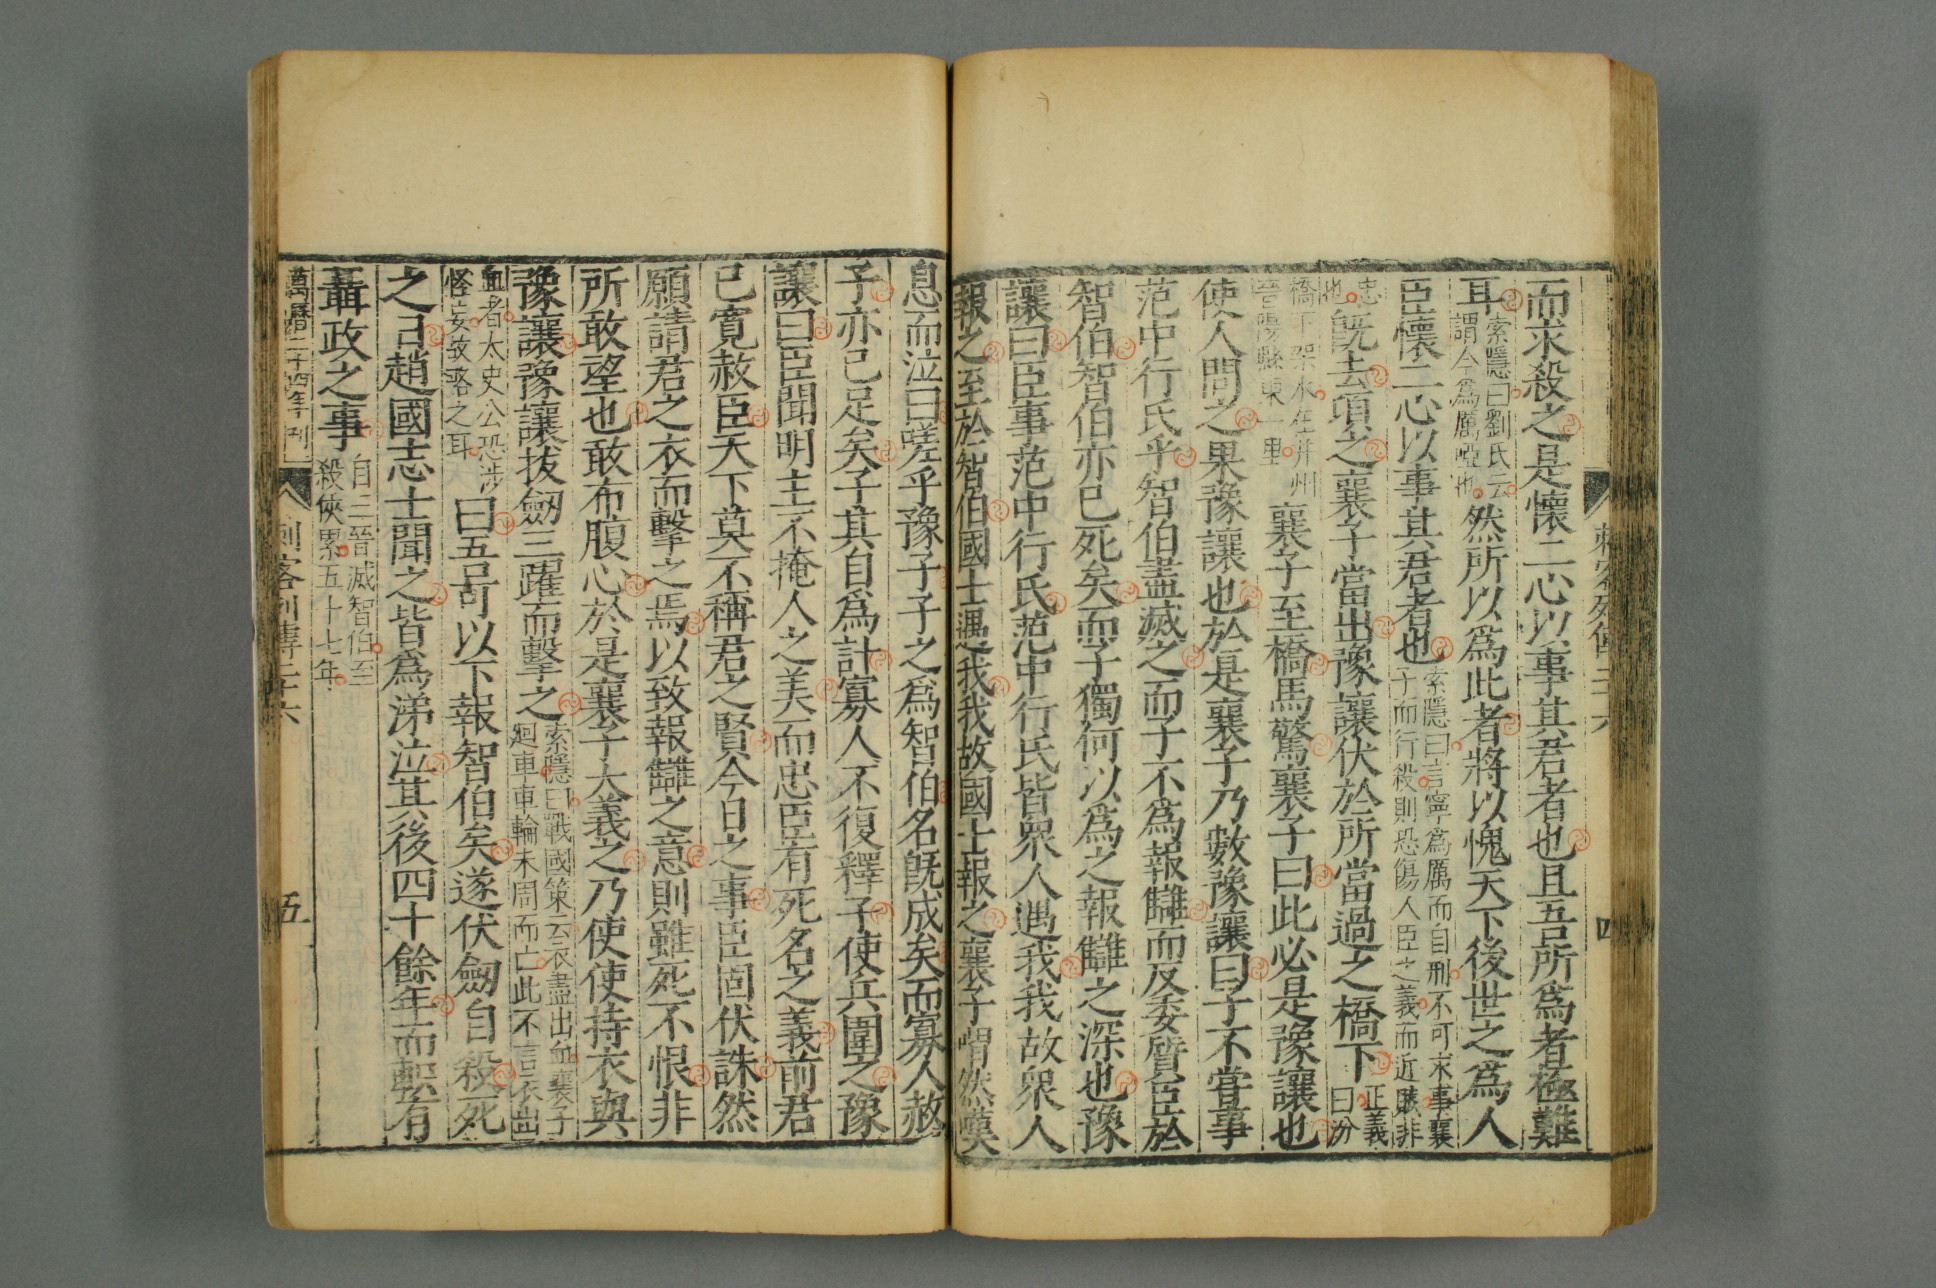 而求殺之是懷二心以事其君者也且吾所爲者極難
耳索隱曰劉氏云謂今爲厲啞也然所以爲此者將以愧天下後世之爲人
臣懷二心以事其君者也索隱曰言寧爲厲而自刑不可求事襄子而行殺則恐傷人臣之義而近賊非
忠也既去頃之襄子當出豫讓伏於所當過之橋下正義曰汾
橋下架水在并州晉陽縣東一里襄子至橋馬驚襄子曰此必是豫讓也
使人問之果豫讓也於是襄子乃數豫讓曰子不嘗事
范中行氏乎智伯盡滅之而子不爲報讎而反委質臣於
智伯智伯亦已死矣而子獨何以爲之報讎之深也豫
讓曰臣事范中行氏范中行氏皆衆人遇我我故衆人
報之至於智伯國士遇我我故國士報之襄子喟然嘆
刺客列傳二十六
四
息而泣曰嗟乎豫子子之爲智伯名既成矣而寡人赦
子亦已足矣子其自爲計寡人不復釋子使兵圍之豫
讓曰臣聞明主不掩人之美而忠臣有死名之義前君
已寬赦臣天下莫不稱君之賢今日之事臣固伏誅然
願請君之衣而擊之焉以致報讎之意則雖死不恨非
所敢望也敢布腹心於是襄子大義之乃使使持衣與
豫讓豫讓拔劒三躍而擊之索隱曰戰國策云衣盡出血襄子廻車車輪未周而亡此不言衣出
血者太史公恐涉怪妄故略之耳曰吾可以下報智伯矣遂伏劒自殺死
之日趙國志士聞之皆爲涕泣其後四十餘年而軹有
聶政之事自三晉滅智伯至殺俠累五十七年
萬曆二十四年刊
刺客列傳二十六
五